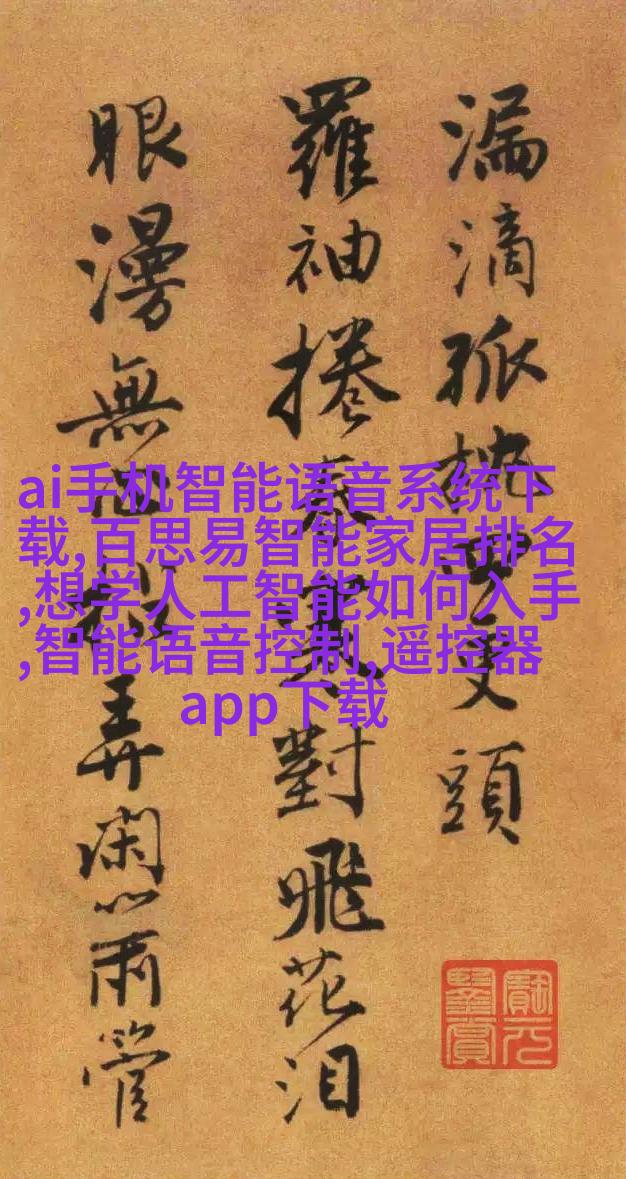 漏滴孤枕更頭
羅袖捲對飛花泪
眼漫無弄閑管
ai手机智能语音系统下
载,百思易智能家居排名
,想学人工智能如何入手
,智能语音控制,遥控器
app下载
元
鑒賞